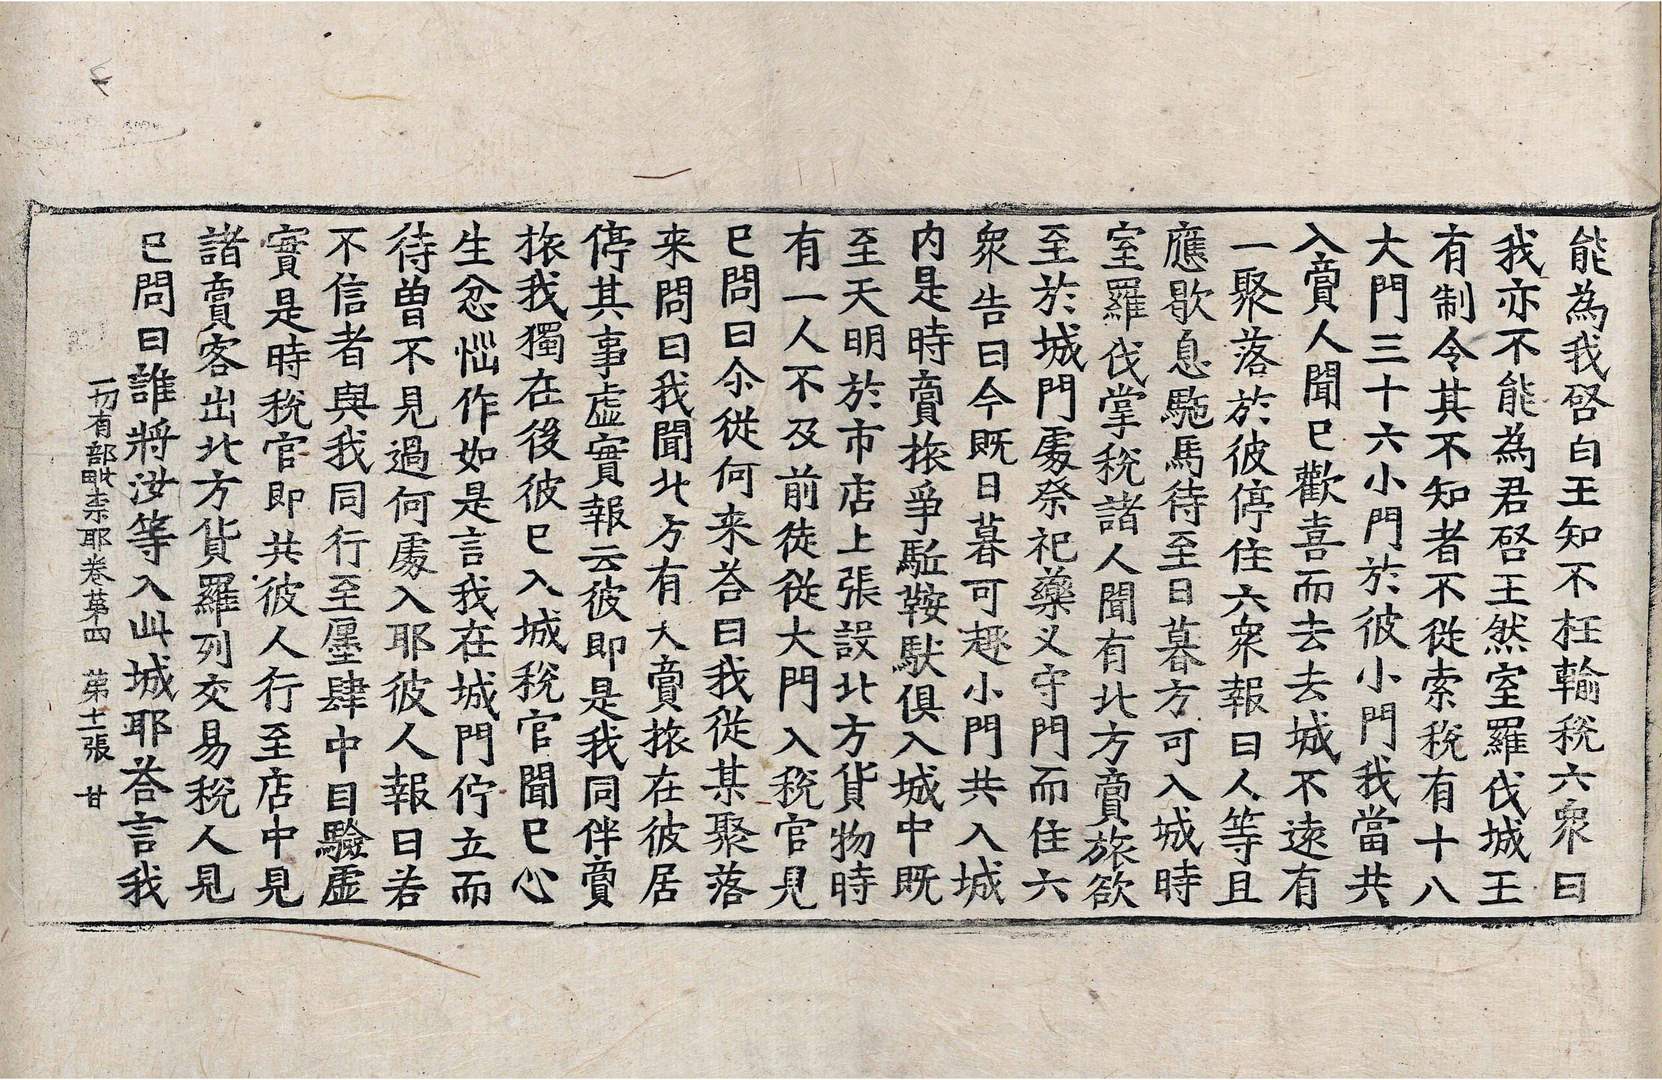 能為我啓白王知不枉輸稅六衆曰
我亦不能為君啓王然室羅伐城王
有制令其不知者不從索稅有十八
大門三十六小門於彼小門我當共
入賣人聞已歡喜而去去城不遠有
一聚落於彼停住六衆報曰人等且
應歇息駞馬待至日暮方可入城時
室羅伐掌稅諸人聞有北方賣旅欲
至於城門處祭祀藥叉守門而住六
衆告曰今既日暮可趣小門共入城
内是時賣旅爭駈鞍馱俱入城中既
至天明於市店上張設北方貨物時
有一人不及前徒從大門入稅官見
已問曰尒從何来荅曰我從某聚落
来問曰我聞北方有大賣旅在彼居
停其事虛實報云彼即是我同伴賣
旅我獨在後彼已入城稅官聞已心
生忿惱作如是言我在城門佇立而
待曽不見過何處入耶彼人報曰若
不信者與我同行至𢋨肆中目驗虛
實是時稅官即共彼人行至店中見
諸賣客出北方貨羅列交易稅人見
已問曰誰將汝等入此城耶荅言我
一切有部毗柰耶卷苐四　苐十一張　甘